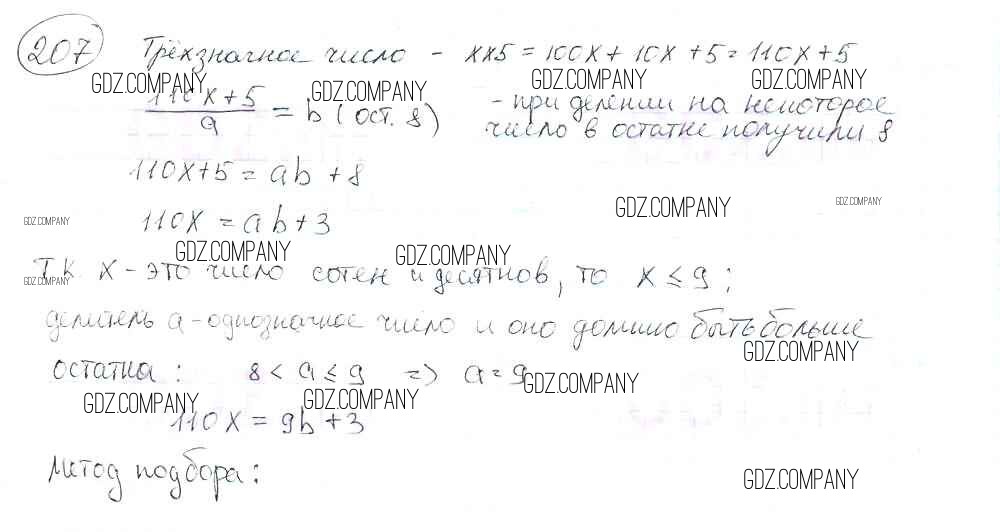 207 Трёхзначное число - xx5 = 100x + 10x + 5 = 110x + 5
GDZ.COMPANY GDZ.COMPANY GDZ.COMPANY GDZ.COMPANY
110x+5 / a = b (ост. 8) - при делении на некоторое
число в остатке получили 8
110x+5 = ab + 8
GDZ.COMPANY GDZ.COMPANY
110x = ab + 3
GDZ.COMPANY
GDZ.COMPANY GDZ.COMPANY
Т.к. x - это число сотен и десятков, то x ≤ 9 ;
GDZ.COMPANY
делитель a - однозначное число и оно должно быть больше
GDZ.COMPANY
остатка : 8 < a ≤ 9 => a = 9
GDZ.COMPANY GDZ.COMPANY GDZ.COMPANY
110x = 9b + 3
Метод подбора:
GDZ.COMPANY